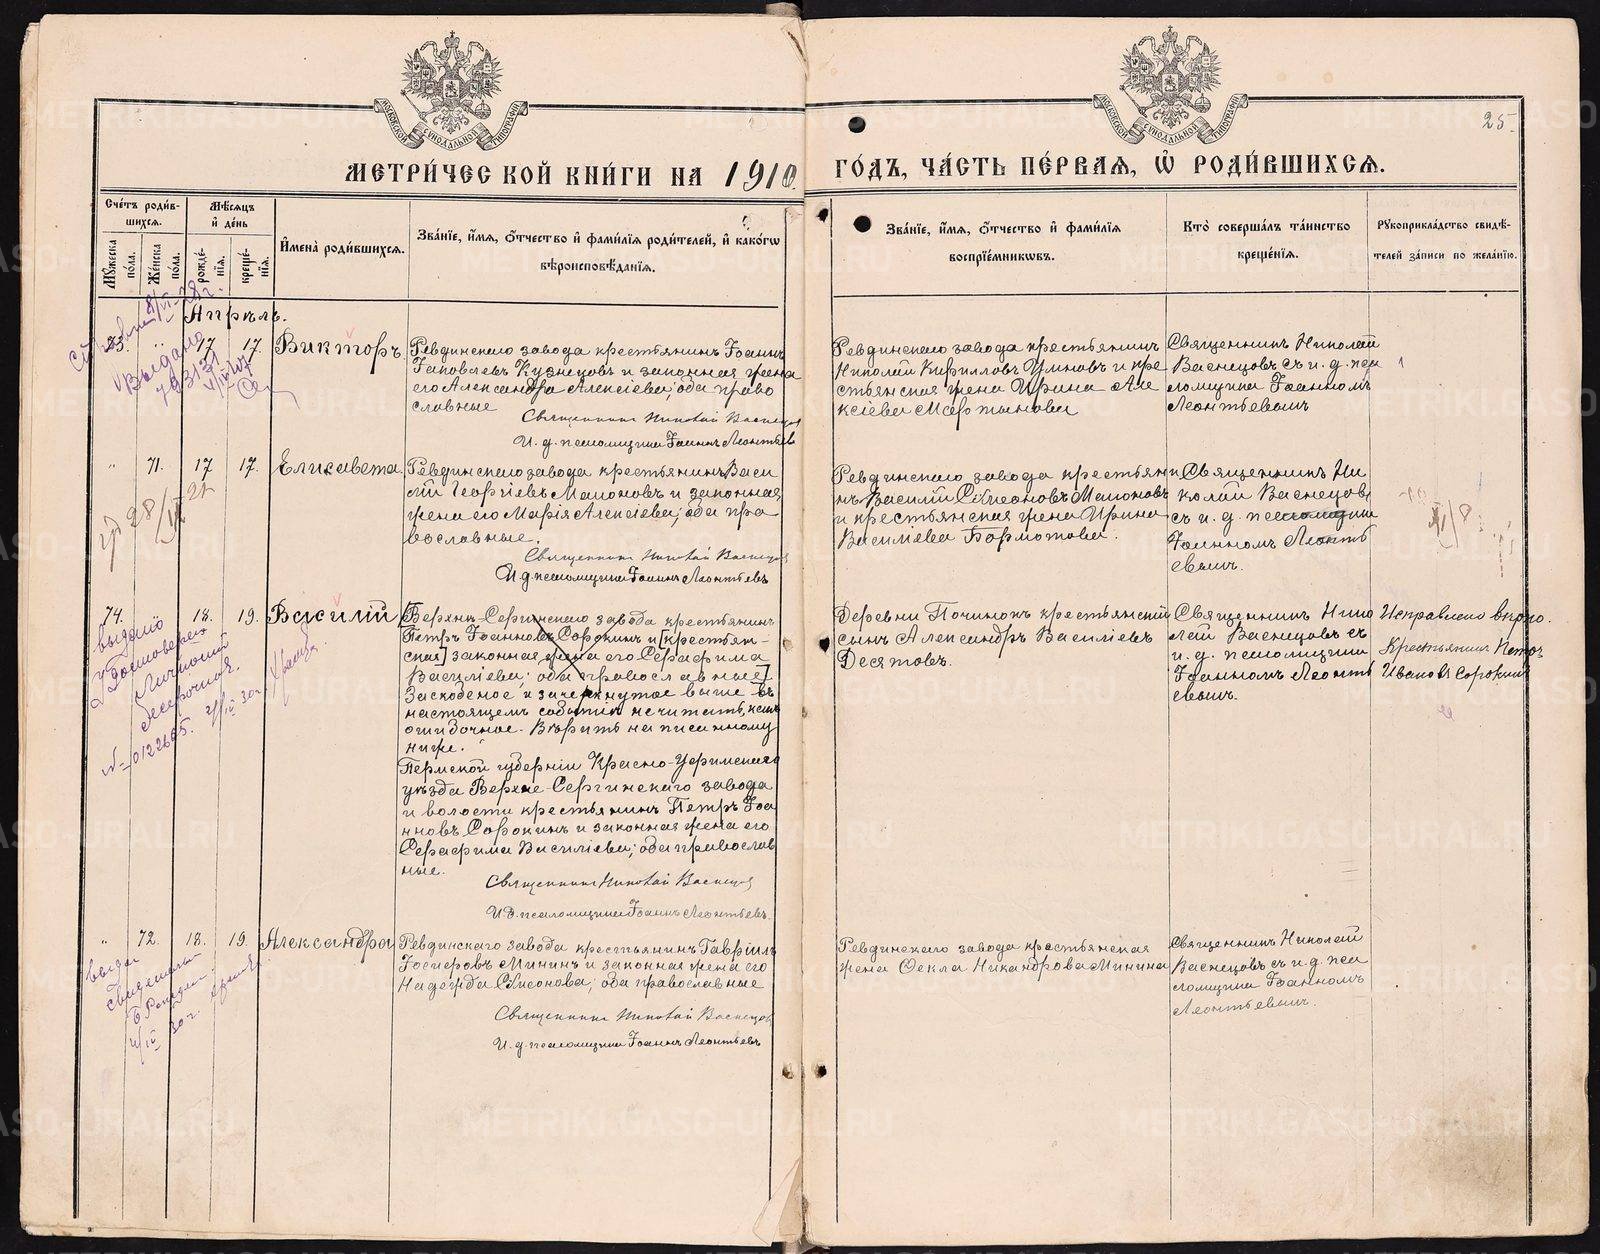 МОСКОВСКОЙ СУНОДАЛЬНОЙ ТИПОГРАФІИ
МОСКОВСКОЙ СУНОДАЛЬНОЙ ТИПОГРАФІИ
25
МЕТРИ́ЧЕСКОЙ КНИ́ГИ НА 1910
ГО́ДЪ, ЧА́СТЬ ПЕ́РВАЯ, Ѽ РОДИ́ВШИХСЯ.
Сче́тъ роди́в-
шихся.
Мѣ́сяцъ
и҆ де́нь
Му́жеска по́ла.
Же́нска по́ла.
рожде́-нія.
креще́-нія.
И҆мена̀ роди́вшихся.
Зва́ніе, и҆́мя, ѻ҆́тчество и҆ фами́лія роди́телей, и҆ како́гѡ
вѣроисповѣ́данія.
Зва́ніе, и҆́мя, ѻ҆́тчество и҆ фами́лія
воспріе́мниковъ.
Кто̀ соверша́лъ та́инство
креще́нія.
Рꙋкоприкла́дство свидѣ́-
телей за́писи по жела́нію.
Апрѣль.
73. " 17 17. Викторъ.
Ревдинскаго завода крестьянинъ Іоаннъ
Іаковлевъ Кузнецовъ и законная жена
его Александра Алексіева; оба право
славные
Священникъ Николай Васнецов
И. д. псаломщика Іоаннъ Леонтьевъ
Ревдинскаго завода крестьянинъ
Николай Кирилловъ Умновъ и кре
стьянская жена Ирина Але
ксіева Мартынова
Священникъ Николай
Васнецовъ съ и. д. пса
ломщика Іоанномъ
Леонтьевымъ
Выдано
" 71. 17 17. Елисавета.
Ревдинскаго завода крестьянинъ Васи
лій Георгіевъ Мамоновъ и законная
жена его Марія Алексіева; оба пра
вославные.
Священникъ Николай Васнецов
И. д. псаломщика Іоаннъ Леонтьевъ
Ревдинскаго завода крестьяни
нъ Василій Сѵмеоновъ Мамоновъ
и крестьянская жена Ирина
Василіева Бормотова.
Священникъ Ни
колай Васнецовъ
съ и. д. псаломщика
Іоанномъ Леонть
евымъ.
28/IX 21
74. 18. 19. Василій
[Верхъ-Сергинскаго завода крестьянинъ
Петръ Іоанновъ Сорокинъ и [крестьян-
ская] законная жена его Серафима
Василіева; оба православные]
Заскобленое и зачеркнутое выше въ
настоящемъ событіи не читать, какъ
ошибочное. Вѣрить написанному
ниже.
Пермской губерніи Красно-Уфимскаго
уѣзда Верхне-Сергинскаго завода
и волости крестьянинъ Петръ Іоа
нновъ Сорокинъ и законная жена его
Серафима Василіева; оба православ
ные.
Священникъ Николай Васнецов
И. д. псаломщика Іоаннъ Леонтьевъ.
Деревни Починокъ крестьянскій
сынъ Александръ Василіевъ
Десятовъ.
Священникъ Нико
лай Васнецовъ съ
и. д. псаломщика
Іоанномъ Леонть
евымъ.
Исправлено вѣрно.
Крестьянинъ Петръ
Ивановъ Сорокинъ
выдано
№ 0122665.
" 72. 18. 19. Александра
Ревдинскаго завода крестьянинъ Гавріилъ
Іосифовъ Мининъ и законная жена его
Надежда Сѵмеонова; оба православные
Священникъ Николай Васнецов
И. д. псаломщика Іоаннъ Леонтьевъ
Ревдинскаго завода крестьянская
жена Ѳекла Никандрова Минина
Священникъ Николай
Васнецовъ съ и. д. пса
ломщика Іоанномъ
Леонтьевымъ.
METRIKI.GASO-URAL.RU